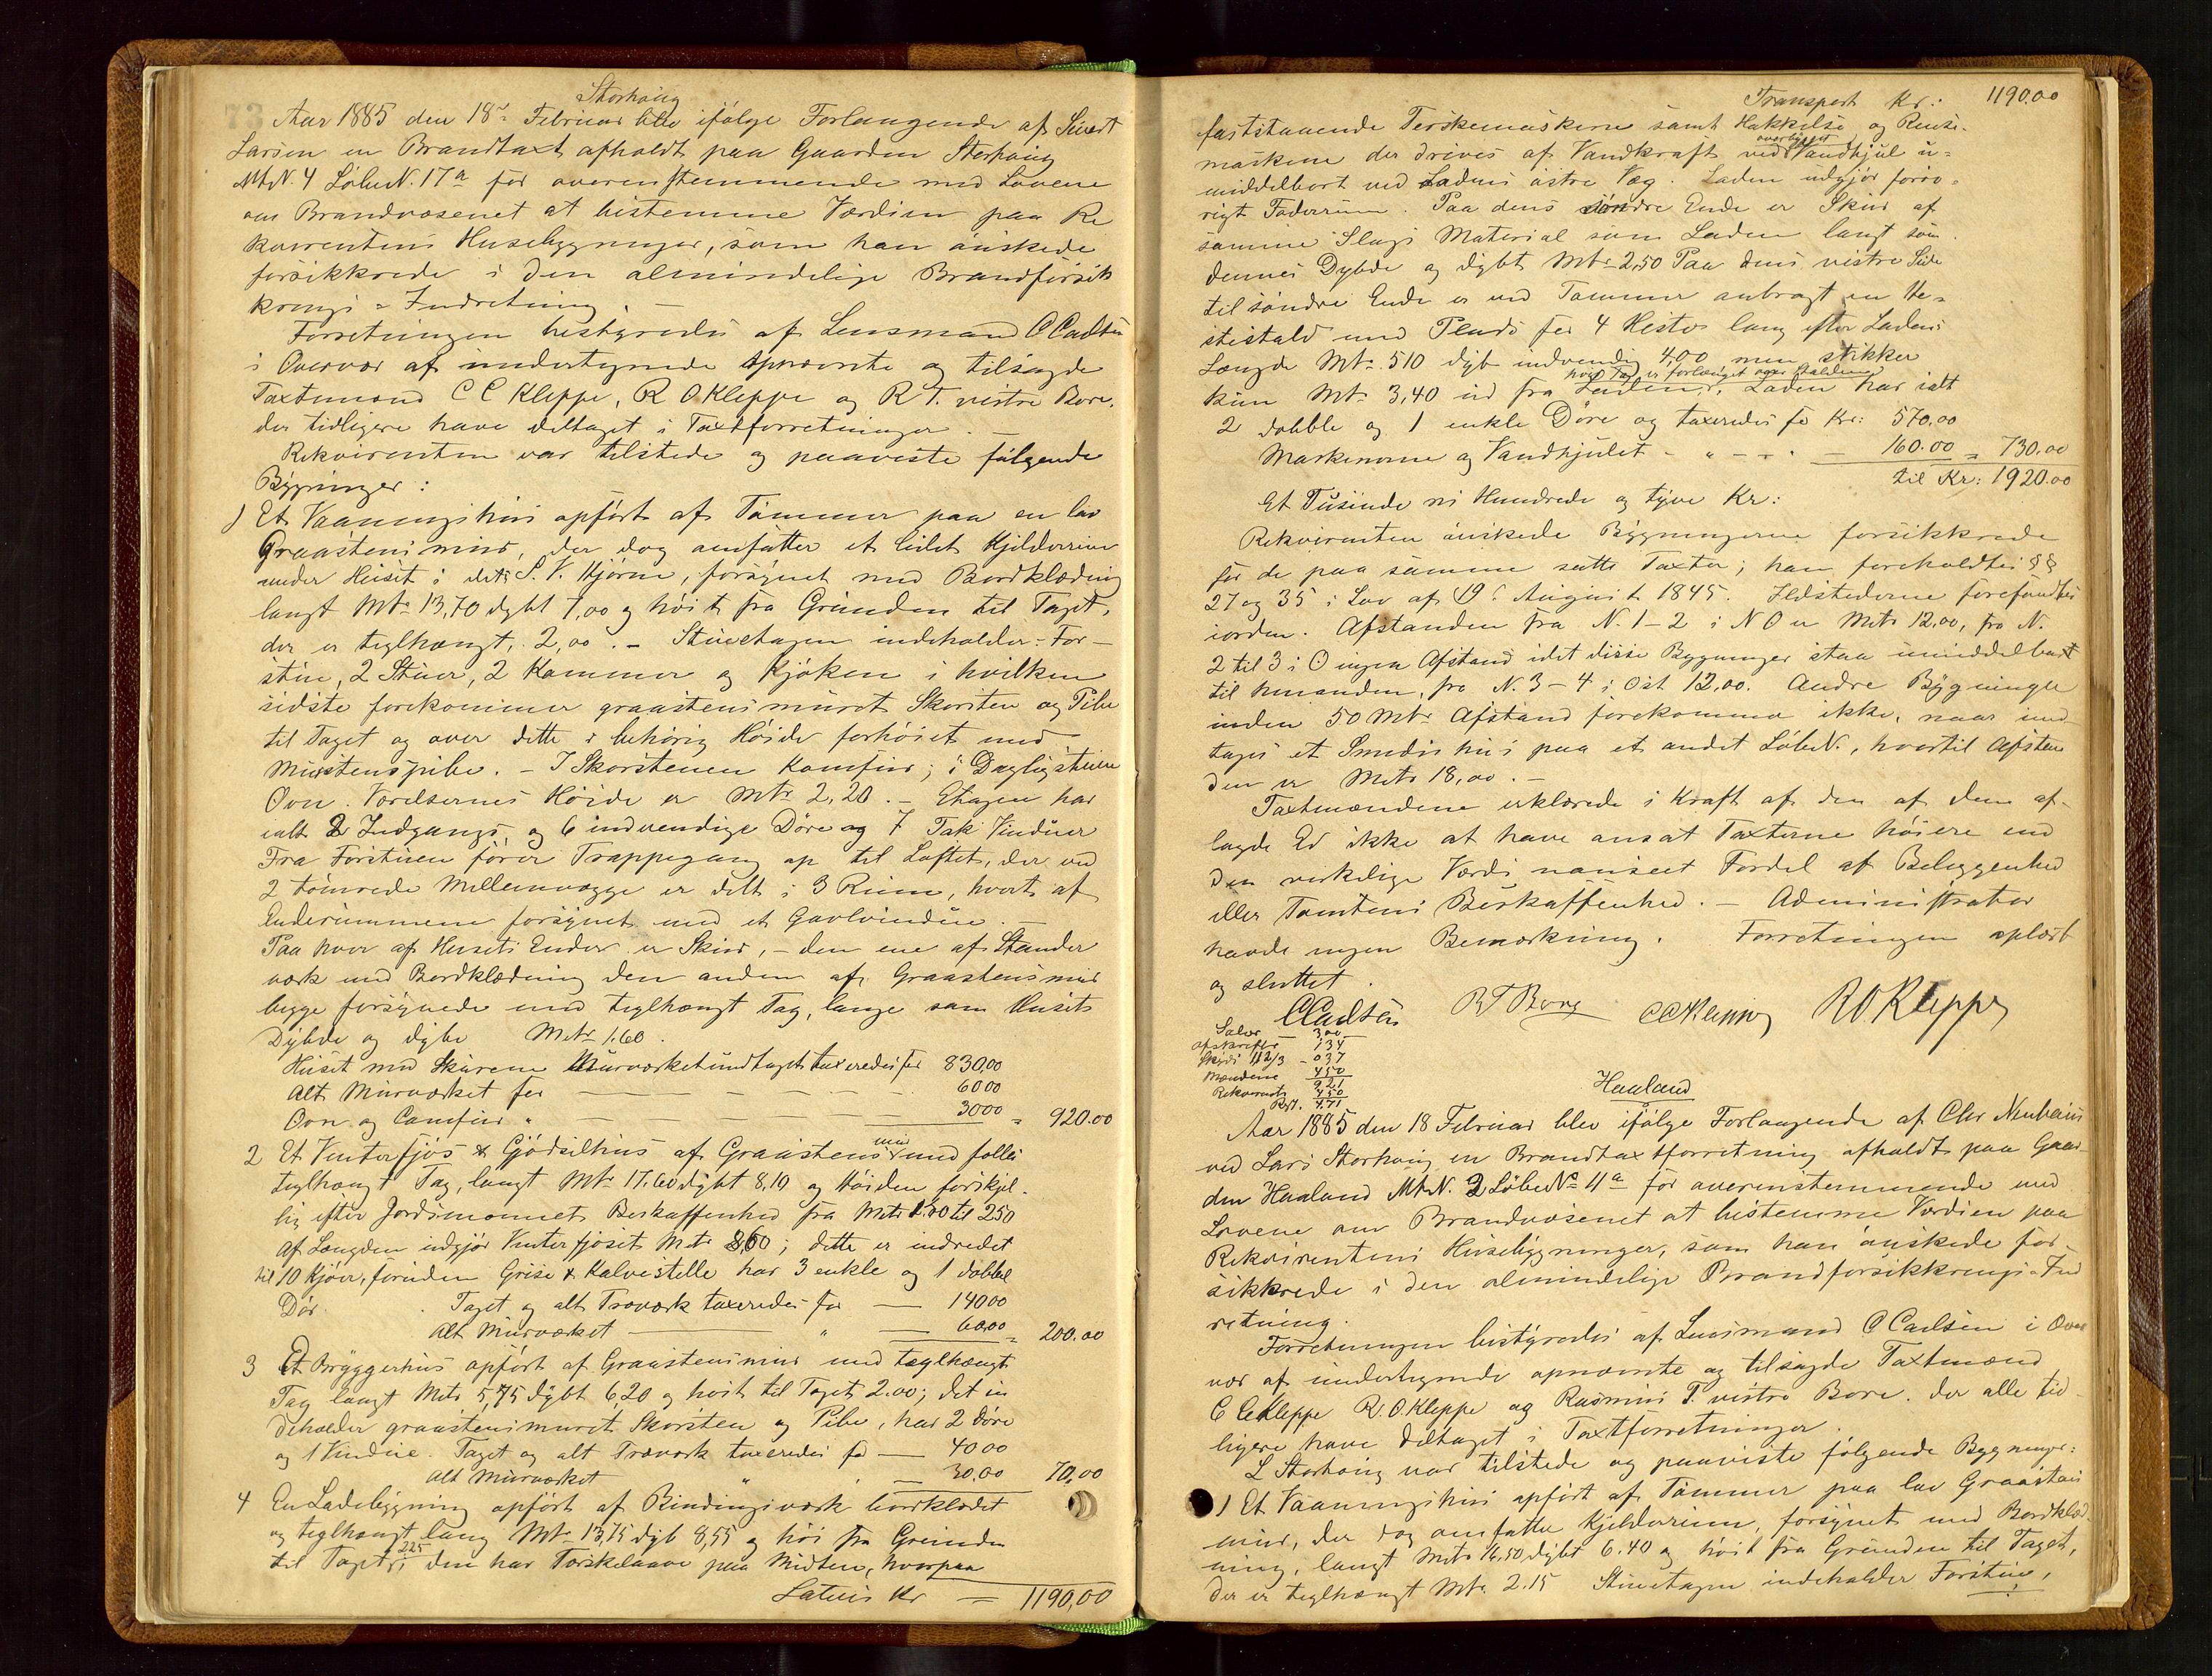 73
Storhaug
Aar 1885 den 18de Februar blev ifølge Forlangende af Sivert
Larsen en Brandtaxt afholdt paa Gaarden Storhaug
MtN. 4 LøbeN. 17a for overenstemmende med Lovene
om Brandvæsenet at bestemme Værdien paa Re
kvirentens Husebygninger, som han ønskede
forsikkrede i den almindelige Brandforsik
krings-Indretning. —
Forretningen bestyredes af Lensmand C Carlsen
i Overvær af undertegnede opnævnte og tilsagde
Taxtmænd C C Kleppe, R O Kleppe og R T. vestre Bore,
der tidligere have deltaget i Taxtforretninger. —
Rekvirenten var tilstede og paaviste følgende
Bygninger:
1 Et Vaaningshus opført af Tømmer paa en lav
Graastensmur, der dog omfatter et lidet Kjelderrum
under Huset i dets S. V. Hjørne, forsynet med Bordklædning
langt Mtr 13,70 dybt 7,00 og høit fra Grunden til Taget,
der er teglhængt, 2,00. – Stueetagen indeholder: For-
stue, 2 Stuer, 2 Kammer og Kjøken i hvilken
sidste forekommer graastensmuret Skorsten og Pibe
til Taget og over dette i behørig Høide forhøiet med
Murstenspibe. – I Skorstenen Komfur; i Dagligstuen
Ovn. Værelsernes Høide er Mtr 2,20. – Etagen har
ialt 2 Indgangs- og 6 indvendige Døre og 7 Fak Vinduer
Fra Forstuen fører Trappegang op til Loftet, der ved
2 tømrede Mellemvægge er delt i 3 Rum, hvort af
Enderummene forsynet med et Gavlvindue. —
Paa hver af Husets Ender er Skur, – den ene af Stander
værk med Bordklædning den anden af Graastensmur
begge forsynede med teglhængt Tag, lange som Husets
Dybde og dybe Metr 1.60.
Huset med Skurene Murværket undtaget taxeredes for 830,00
Alt Murværket for — — — — 60 00
Ovn og Comfur " — — — — 30 00 = 920.00
2 Et Vinterfjøs & Gjødselhus af Graastensmur med falles
teglhængt Tag, langt Mtr 17.60 dybt 8,10 og Høiden forskjel-
lig efter Jordsmonnets Beskaffenhed fra Metr 1.70 til 250
Af Længden udgjør Vinterfjøset Metr 8,60; dette er indredet
til 10 Kjøer, foruden Grise & Kalvestelle har 3 enkle og 1 dobbel
Dør. Taget og alt Træværk taxeredes for — 140 00
Alt Murværket — " — 60,00 = 200.00
3 Et Bryggerhus opført af Graastensmur med teglhængt
Tag langt Metr 5,75 dybt 6,20 og høit til Taget 2.00; det in
deholder graastensmuret Skorsten og Pibe, har 2 Døre
og 1 Vindue. Taget og alt Træværk taxeredes for — 40 00
Alt Murværket " — 30,00 70,00
4 En Ladebygning opført af Bindingsværk bordklædet
og teglhængt, lang Mtr 13,75 dyb 8,55 og høi fra Grunden
til Taget 225, den har Tærskelaave paa Midten, hvorpaa
Latus Kr — 1190,00
Transport Kr: 1190.00
faststaaende Terskemaskine samt Hakkelse og Rense-
maskine der drives af Vandkraft ved overbygget Vandhjul u-
middelbart ved Ladens østre Væg. Laden udgjør forøv-
rigt Foderrum. Paa dens søndre Ende er Skur af
samme Slags Material som Laden langt som
dennes Dybde og dybt Mtr 2,50 Paa dens vestre Side
til søndre Ende er ved Tømmer anbragt en He-
stestald med Plads for 4 Heste lang efter Ladens
Længde Mtr 510 dyb indvendig 4,00 men stikker
kun Mtr 3,40 ud fra Laden, hvis Tag er forlænget over Stalden. Laden har ialt
2 dobble og 1 enkle Døre og taxeredes for Kr: 570,00
Maskinerne og Vandhjulet - " - - - — 160.00 = 730,00
til Kr: 1920.00
Et Tusinde ni Hundrede og tyve Kr:
Rekvirenten ønskede Bygningerne forsikkrede
for de paa samme satte Taxter; han foreholdtes §§
27 og 35 i Lov af 19de August 1845. Ildstederne forefandtes
iorden. Afstanden fra N. 1-2 i N O er Metr 12,00, fra N.
2 til 3 i O ingen Afstand idet disse Bygninger staa umiddelbart
til hinanden, fra N. 3-4 i Ost 12,00. Andre Bygninger
inden 50 Mtr Afstand forekomme ikke, naar und
tages et Smedehus paa et andet LøbeN., hvortil Afstan
den er Metr 18,00. —
Taxtmændene erklærede i Kraft af den af dem af-
lagde Ed ikke at have ansat Taxterne høiere end
den virkelige Værdi uanseet Fordel af Beliggenhed
eller Tomtens Beskaffenhed. — Administrator
havde ingen Bemærkning. Forretningen oplæst
og sluttet.
CCarlsen R T Bore CCKleppe ROKleppe
Salær — 300
Afskrifter 134
Skyds 11 2/3 - 037
Mændene 450
921
Rekvirents 450
Rest. 471
Haaland
Aar 1885 den 18 Februar blev ifølge Forlangende af Chr Neuhaus
ved Lars Storhaug en Brandtaxtforretning afholdt paa Gaar-
den Haaland MtN. 2 LøbeNo 11a for overenstemmende med
Lovene om Brandvæsenet at bestemme Værdien paa
Rekvirentens Husebygninger, som han ønskede for-
sikkrede i den almindelige Brandforsikkrings-Ind
retning.
Forretningen bestyredes af Lensmand C Carlsen i Over
vær af undertegnede opnævnte og tilsagde Taxtmænd
C C Kleppe R. O. Kleppe og Rasmus T. vestre Bore. der alle tid-
ligere have deltaget i Taxtforretninger.
L Storhaug var tilstede og paaviste følgende Bygninger:
1 Et Vaaningshus opført af Tømmer paa lav Graastens
mur, der dog omfatter Kjelderrum, forsynet med Bordklæd-
ning, langt Metr 16,50, dybt 6.40 og høit fra Grunden til Taget,
der er teglhængt Mtr. 2.15 Stueetagen indeholder Forstue,